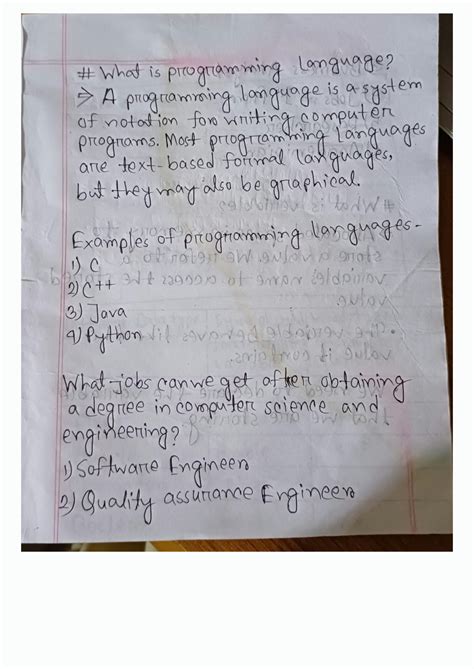 # What is programming language?
→ A programming language is a system
of notation for writing computer
programs. Most programming languages
are text-based formal languages,
but they may also be graphical.
Examples of programming languages-
1) C
2) C++
3) Java
4) Python
What jobs can we get after obtaining
a degree in computer science and
engineering?
1) Software Engineer
2) Quality assurance Engineer